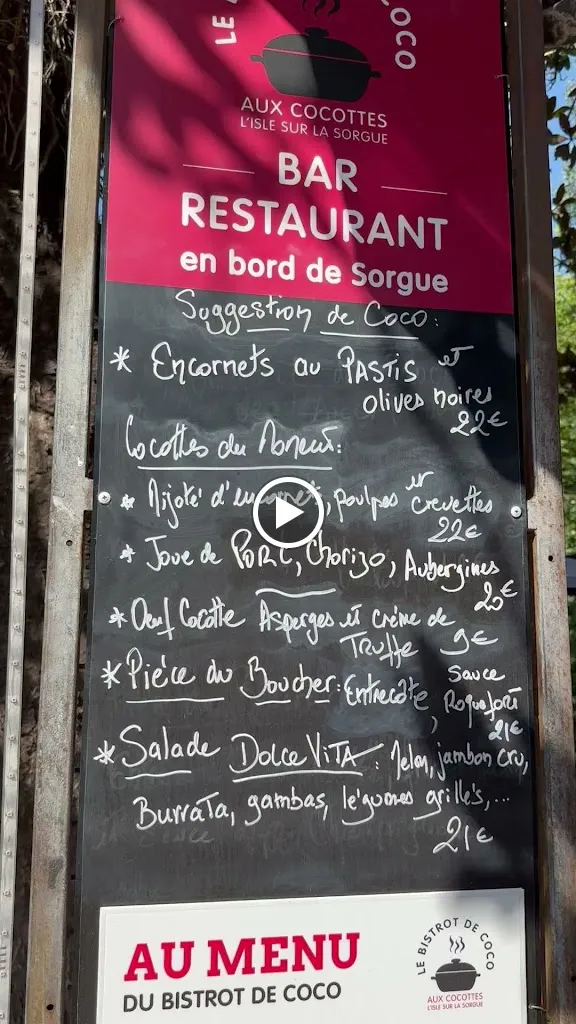 LE
COCO
AUX COCOTTES
L'ISLE SUR LA SORGUE
BAR
RESTAURANT
en bord de Sorgue
Suggestion de Coco:
* Encornets au PASTIS et
olives noires
22€
Cocottes du Moment:
* Mijoté d'encornets, poulpes et crevettes
22€
* Joue de PORC, Chorizo, Aubergines
20€
* Oeuf Cocotte Asperges et crème de
Truffe 9€
* Pièce du Boucher: Entrecôte, Sauce
Roquefort
21€
* Salade DOLCE VITA: Melon, jambon cru,
BurraTa, gambas, légumes grillés,...
21€
AU MENU
DU BISTROT DE COCO
LE BISTROT DE COCO
AUX COCOTTES
L'ISLE SUR LA SORGUE